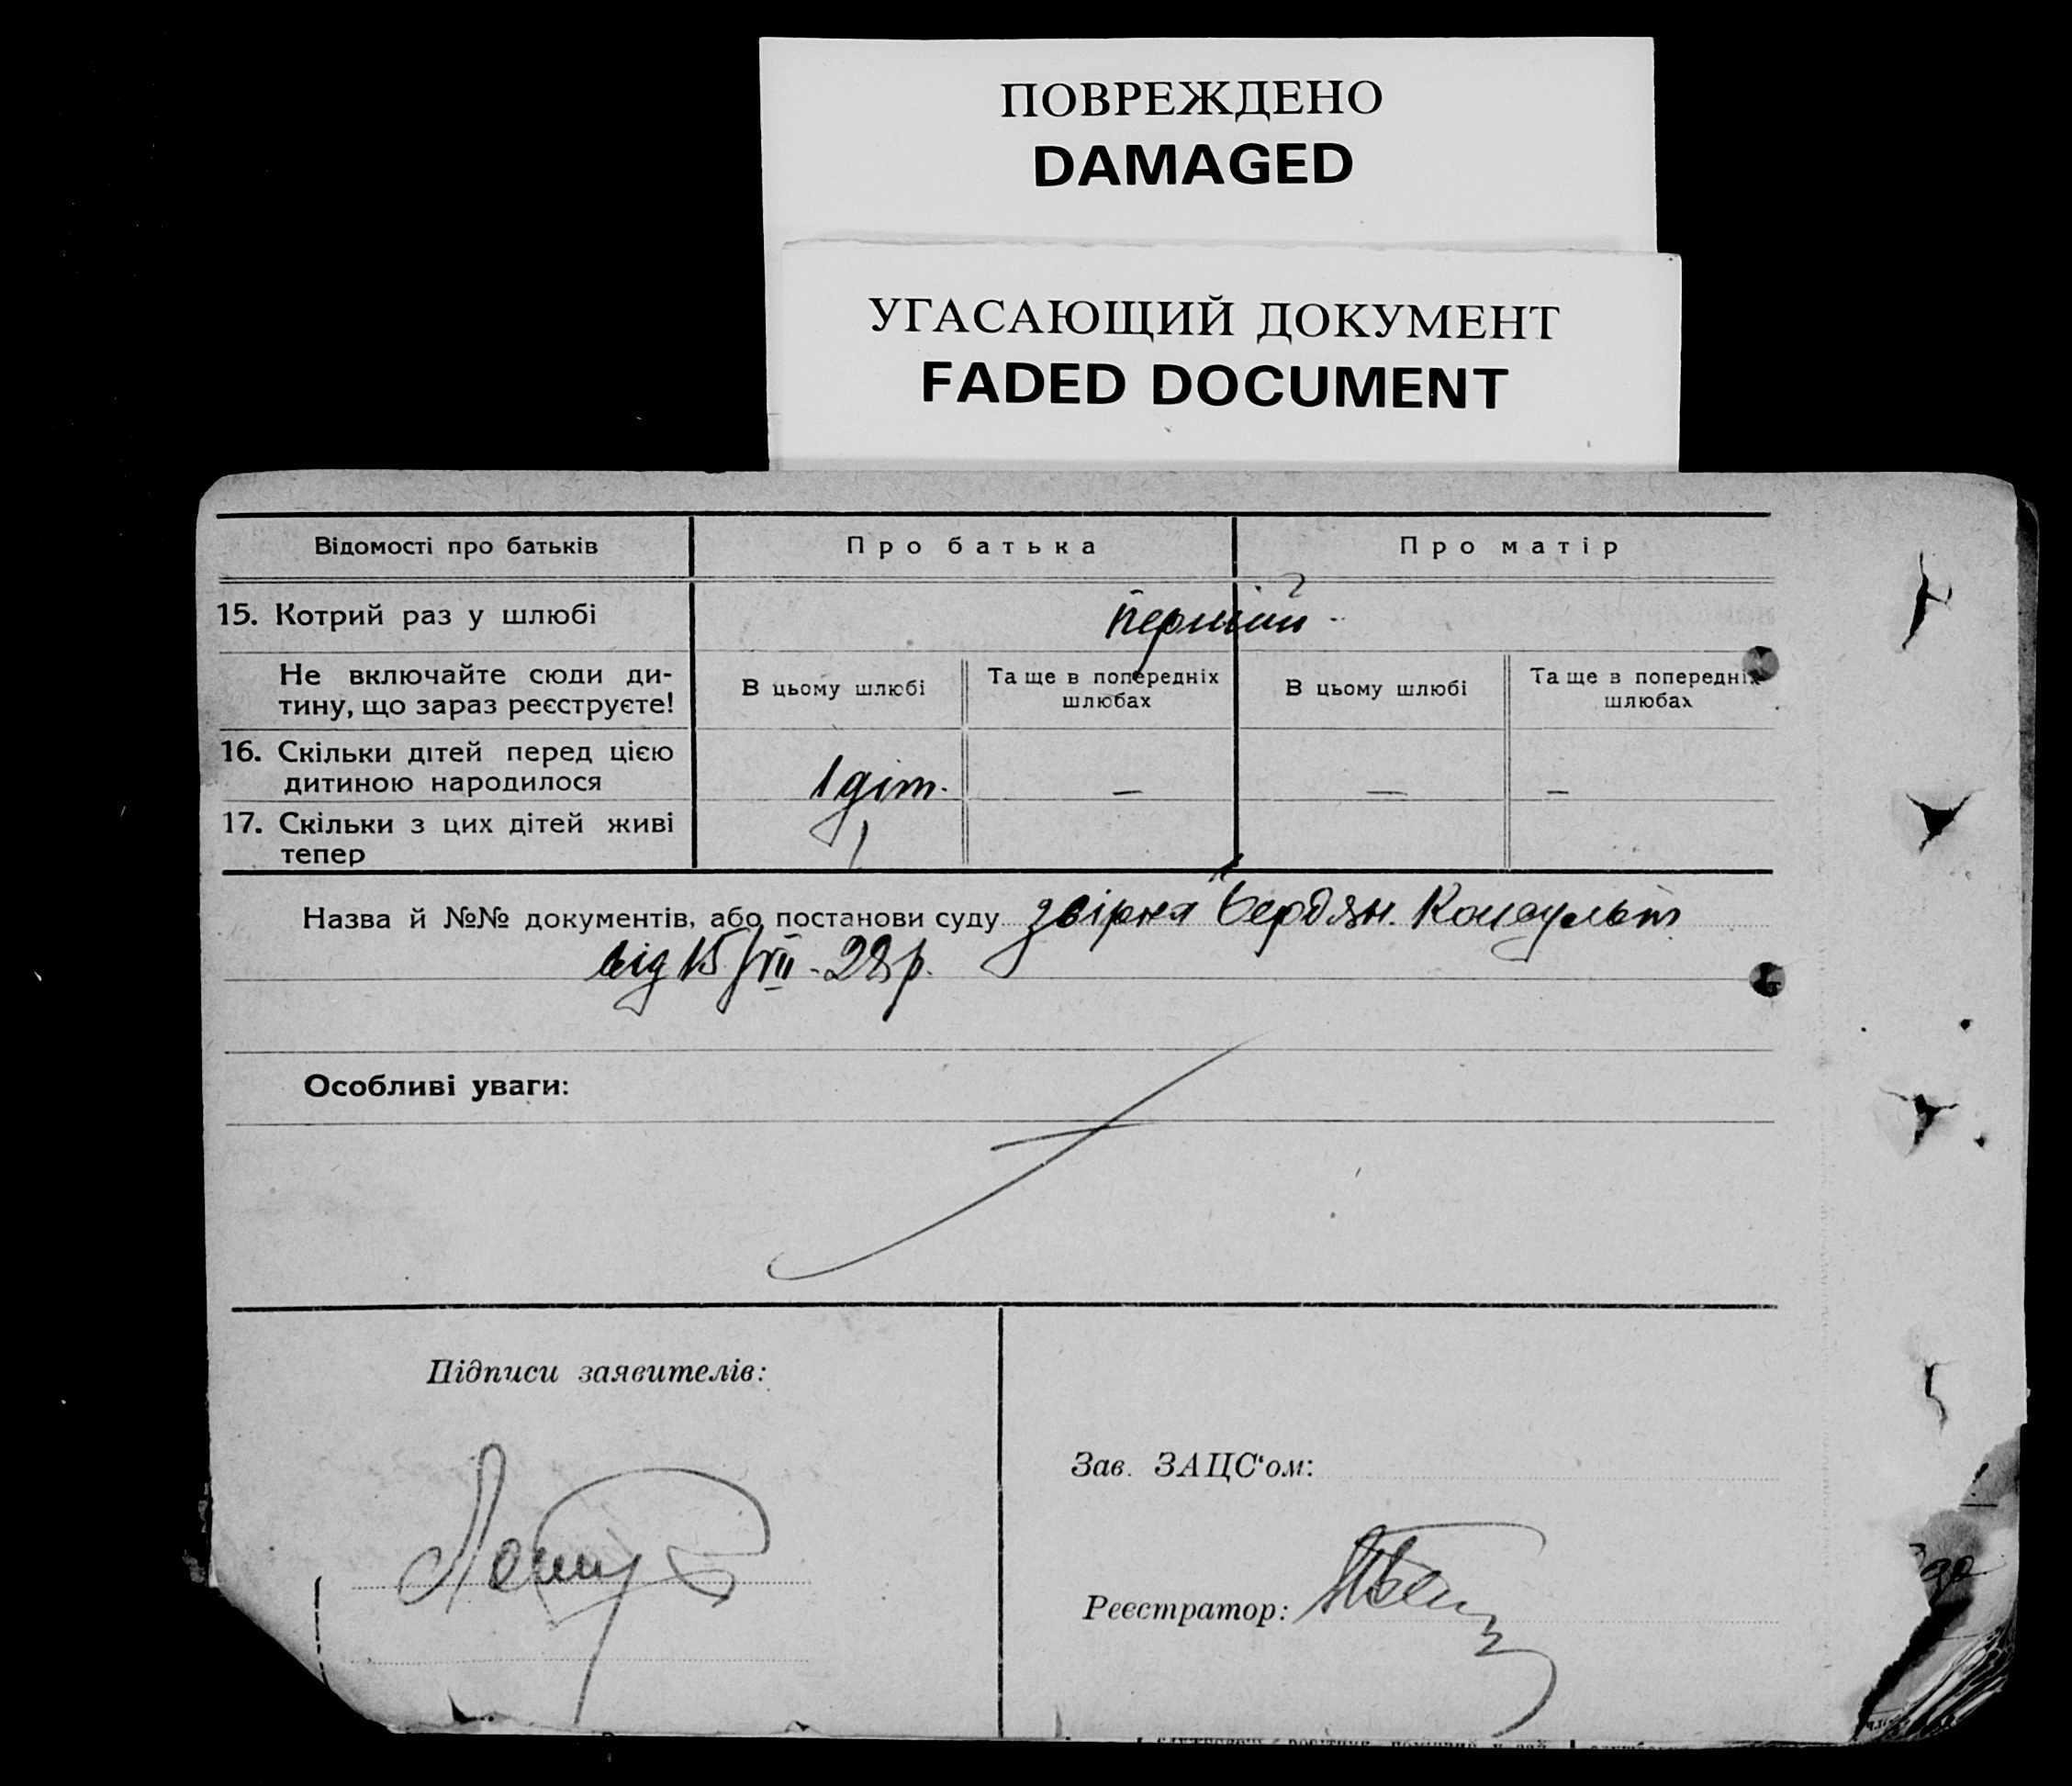 ПОВРЕЖДЕНО
DAMAGED
УГАСАЮЩИЙ ДОКУМЕНТ
FADED DOCUMENT
Відомості про батьків Про батька Про матір
15. Котрий раз у шлюбі перший
Не включайте сюди ди-
тину, що зараз реєструєте!
В цьому шлюбі
Та ще в попередніх
шлюбах
В цьому шлюбі
Та ще в попередніх
шлюбах
16. Скільки дітей перед цією
дитиною народилося
1 діт. — — —
17. Скільки з цих дітей живі
тепер
1
Назва й №№ документів, або постанови суду Бердян. Консульт
від 15/VII - 28 р.
Особливі уваги:
Підписи заявителів:
Зав. ЗАЦС'ом:
Реєстратор: